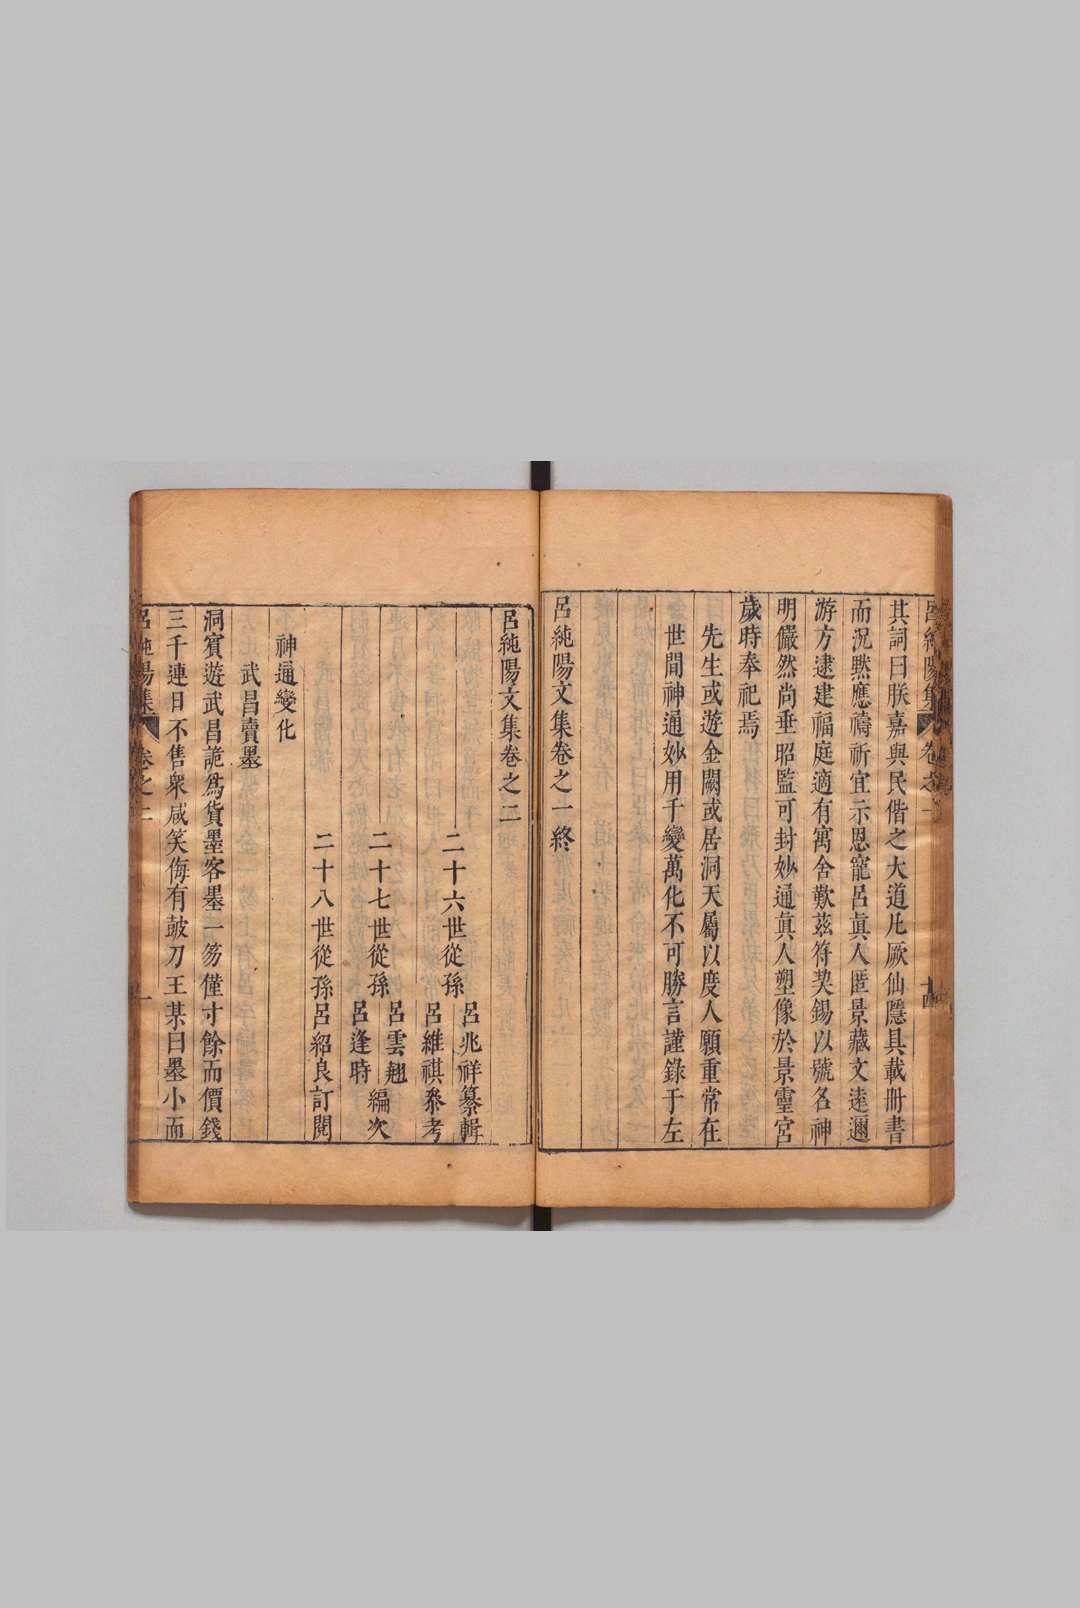 呂純陽集 卷之一 十四
其詞曰朕嘉與民偕之大道凡厥仙隱具載冊書
而況黙應禱祈宜示恩寵呂眞人匿景藏文遠邇
游方逮建福庭適有寓舍歎茲符契錫以號名神
明儼然尚垂昭監可封妙通眞人塑像於景靈宮
歲時奉祀焉
先生或遊金闕或居洞天屬以度人願重常在
世間神通妙用千變萬化不可勝言謹錄于左
呂純陽文集卷之一終
呂純陽文集卷之二
二十六世從孫 呂兆祥纂輯
呂維祺叅考
二十七世從孫 呂雲翹 編次
呂逢時
二十八世從孫呂紹良訂閱
神通變化
武昌賣墨
洞賓遊武昌詭爲貨墨客墨一笏僅寸餘而價錢
三千連日不售衆咸笑侮有鼓刀王某曰墨小而
呂純陽集 卷之二 一